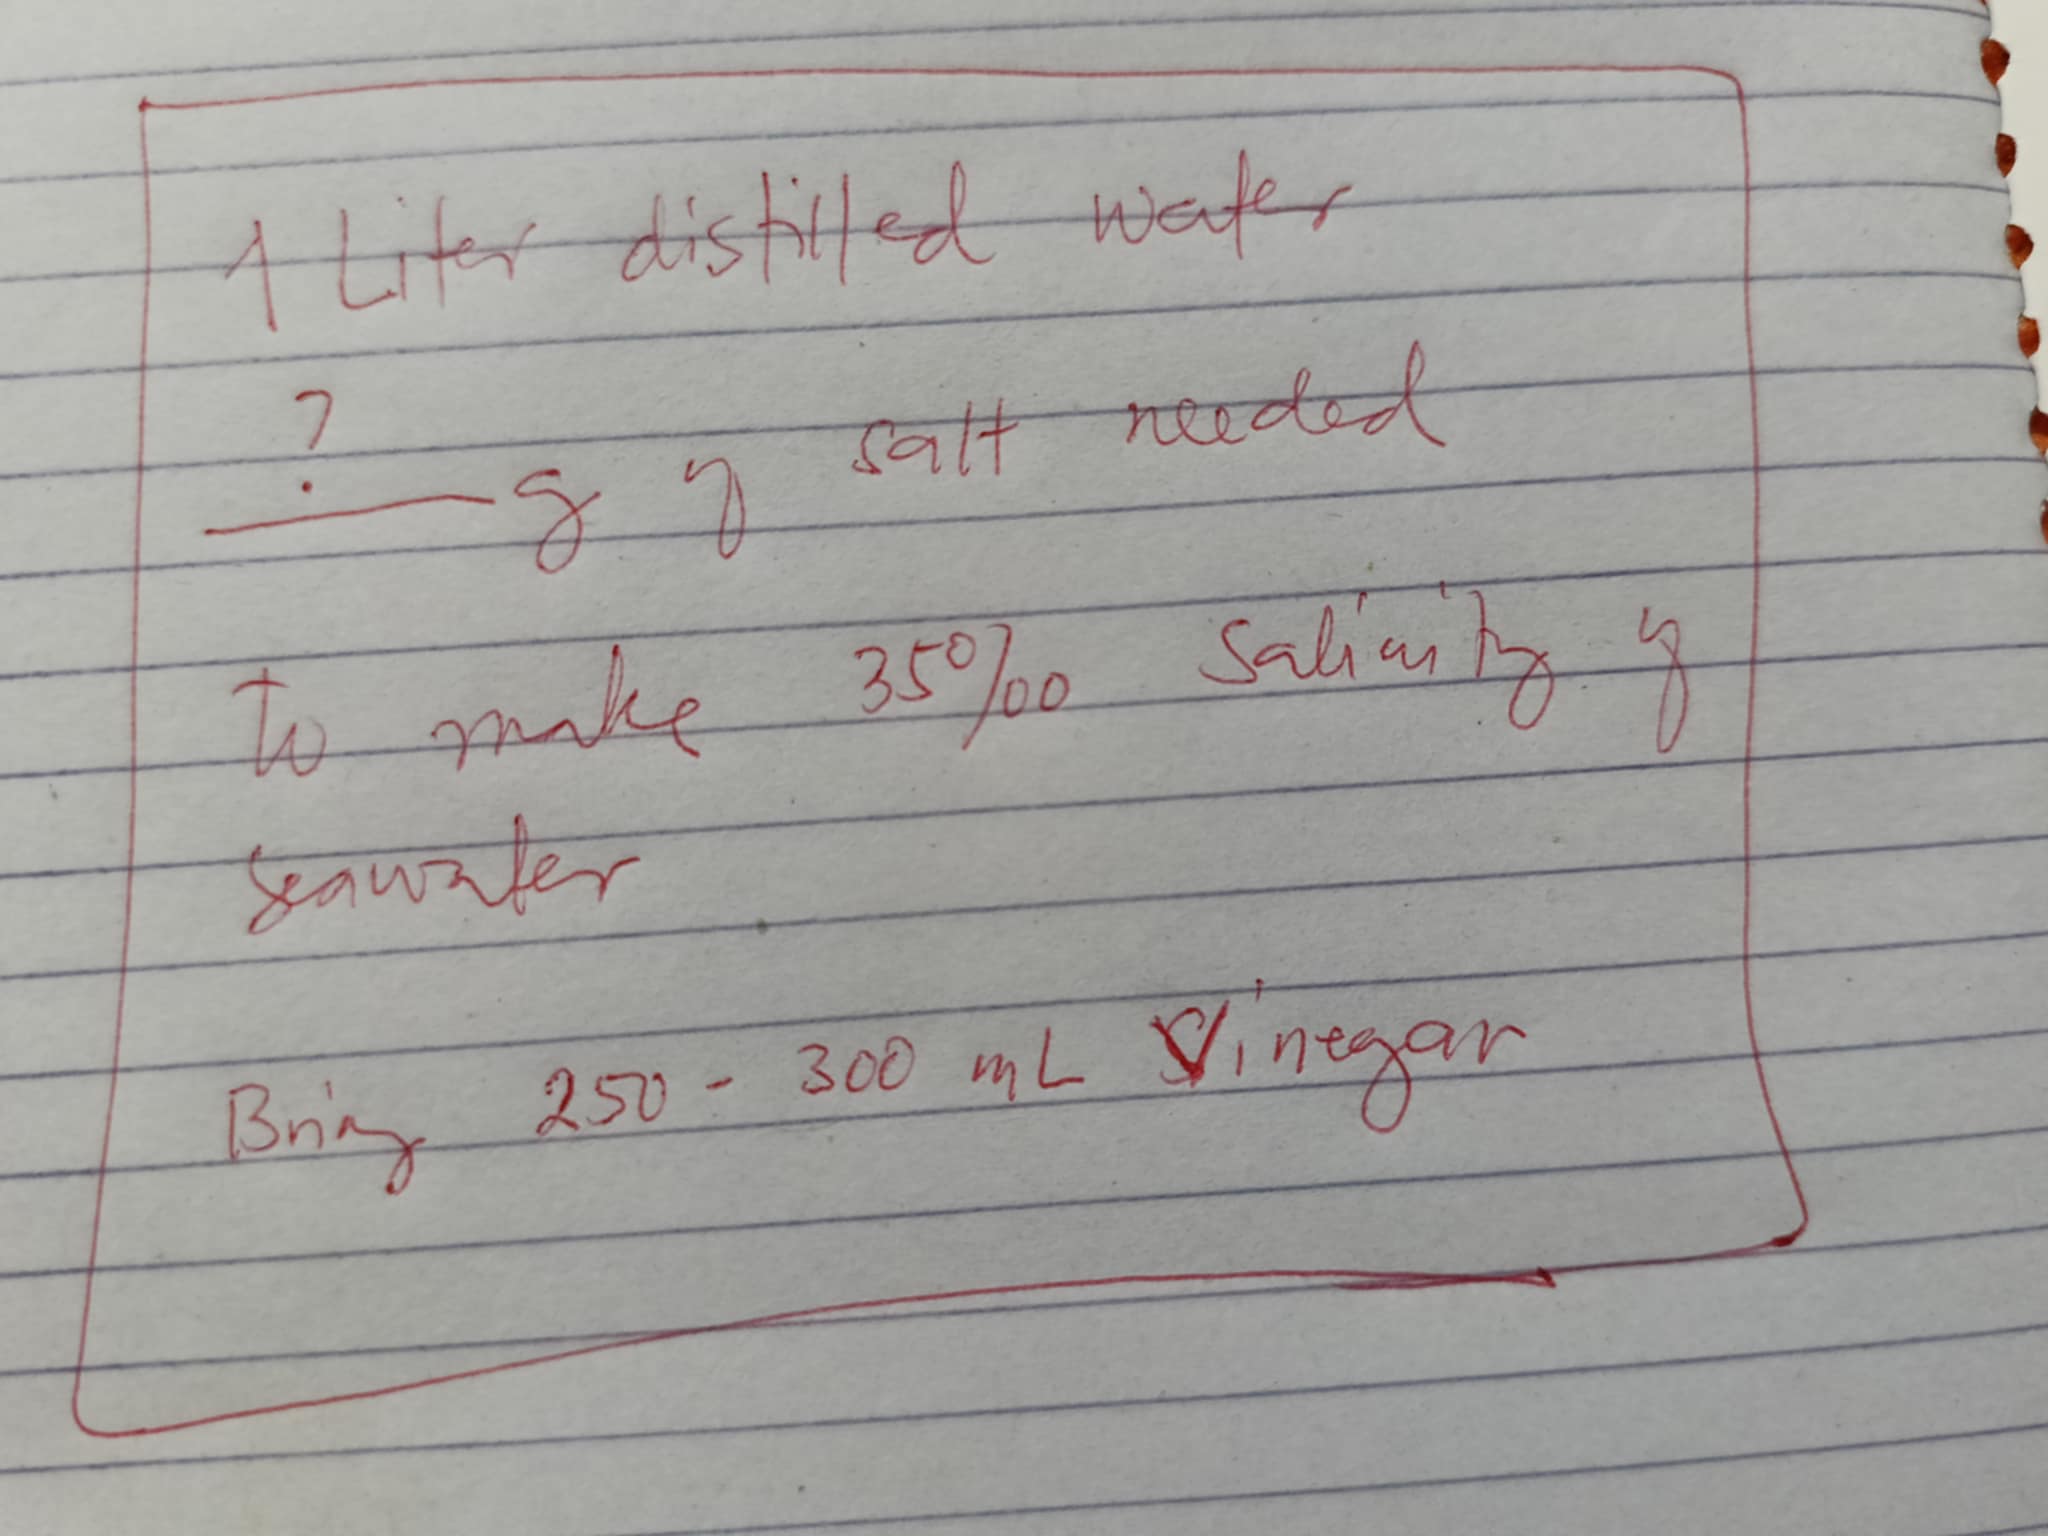 1 Liter distilled water
? g of salt needed
to make 35‰ salinity of
seawater
Bring 250 - 300 mL Vinegar